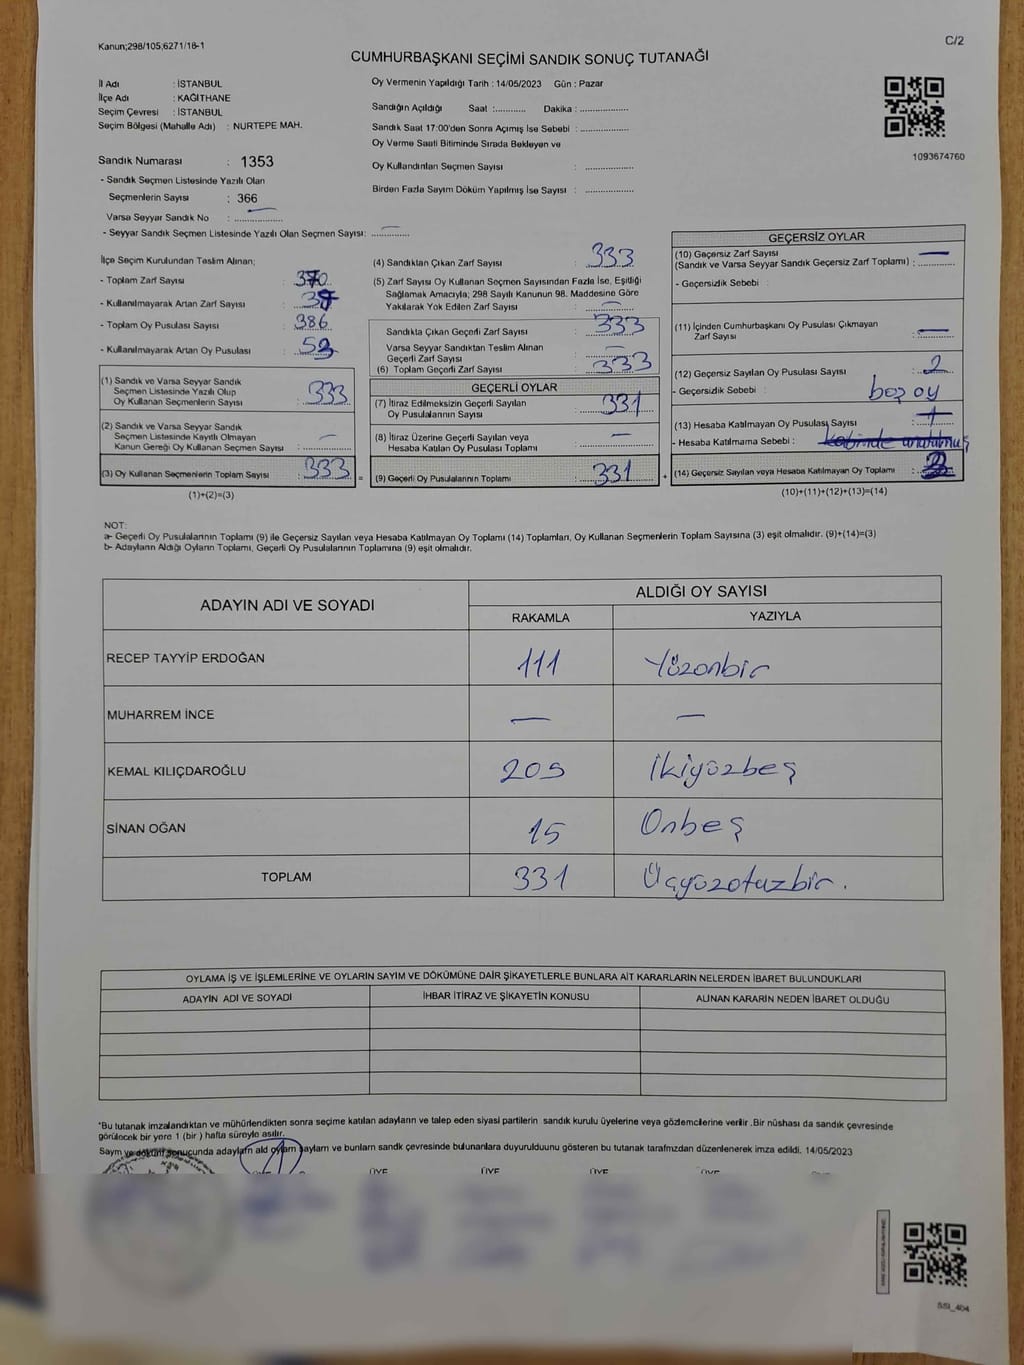 Kanun;298/105;6271/18-1
C/2
CUMHURBAŞKANI SEÇİMİ SANDIK SONUÇ TUTANAĞI
İl Adı : İSTANBUL
İlçe Adı : KAĞITHANE
Seçim Çevresi : İSTANBUL
Seçim Bölgesi (Mahalle Adı) : NURTEPE MAH.
Oy Vermenin Yapıldığı Tarih : 14/05/2023 Gün : Pazar
Sandığın Açıldığı Saat :........... Dakika : ..................
Sandık Saat 17:00'den Sonra Açımış İse Sebebi : ..................
Oy Verme Saati Bitiminde Sırada Bekleyen ve
Oy Kullandırılan Seçmen Sayısı : ..................
Birden Fazla Sayım Döküm Yapılmış İse Sayısı : ..................
1093674760
Sandık Numarası : 1353
- Sandık Seçmen Listesinde Yazılı Olan
Seçmenlerin Sayısı : 366
Varsa Seyyar Sandık No : —
- Seyyar Sandık Seçmen Listesinde Yazılı Olan Seçmen Sayısı: —
İlçe Seçim Kurulundan Teslim Alınan;
- Toplam Zarf Sayısı : 370
- Kullanılmayarak Artan Zarf Sayısı : 37
- Toplam Oy Pusulası Sayısı : 386
- Kullanılmayarak Artan Oy Pusulası : 53
(1) Sandık ve Varsa Seyyar Sandık
Seçmen Listesinde Yazılı Olup
Oy Kullanan Seçmenlerin Sayısı : 333
(2) Sandık ve Varsa Seyyar Sandık
Seçmen Listesinde Kayıtlı Olmayan
Kanun Gereği Oy Kullanan Seçmen Sayısı : —
(3) Oy Kullanan Seçmenlerin Toplam Sayısı : 333 =
(1)+(2)=(3)
(4) Sandıktan Çıkan Zarf Sayısı : 333
(5) Zarf Sayısı Oy Kullanan Seçmen Sayısından Fazla İse, Eşitliği
Sağlamak Amacıyla; 298 Sayılı Kanunun 98. Maddesine Göre
Yakılarak Yok Edilen Zarf Sayısı : —
Sandıkta Çıkan Geçerli Zarf Sayısı : 333
Varsa Seyyar Sandıktan Teslim Alınan
Geçerli Zarf Sayısı : —
(6) Toplam Geçerli Zarf Sayısı : 333
GEÇERLİ OYLAR
(7) İtiraz Edilmeksizin Geçerli Sayılan
Oy Pusulalarının Sayısı : 331
(8) İtiraz Üzerine Geçerli Sayılan veya
Hesaba Katılan Oy Pusulası Toplamı : —
(9) Geçerli Oy Pusulalarının Toplamı : 331 +
GEÇERSİZ OYLAR
(10) Geçersiz Zarf Sayısı
(Sandık ve Varsa Seyyar Sandık Geçersiz Zarf Toplamı) : —
- Geçersizlik Sebebi :
(11) İçinden Cumhurbaşkanı Oy Pusulası Çıkmayan
Zarf Sayısı : —
(12) Geçersiz Sayılan Oy Pusulası Sayısı : 2
- Geçersizlik Sebebi : boş oy
(13) Hesaba Katılmayan Oy Pusulası Sayısı
- Hesaba Katılmama Sebebi : kabinde unutulmuş
(14) Geçersiz Sayılan veya Hesaba Katılmayan Oy Toplamı :
(10)+(11)+(12)+(13)=(14)
NOT:
a- Geçerli Oy Pusulalarının Toplamı (9) ile Geçersiz Sayılan veya Hesaba Katılmayan Oy Toplamı (14) Toplamları, Oy Kullanan Seçmenlerin Toplam Sayısına (3) eşit olmalıdır. (9)+(14)=(3)
b- Adayların Aldığı Oyların Toplamı, Geçerli Oy Pusulalarının Toplamına (9) eşit olmalıdır.
ADAYIN ADI VE SOYADI
ALDIĞI OY SAYISI
RAKAMLA YAZIYLA
RECEP TAYYİP ERDOĞAN 111 Yüzonbir
MUHARREM İNCE — —
KEMAL KILIÇDAROĞLU 205 İkiyüzbeş
SİNAN OĞAN 15 Onbeş
TOPLAM 331 Üçyüzotuzbir.
OYLAMA İŞ VE İŞLEMLERİNE VE OYLARIN SAYIM VE DÖKÜMÜNE DAİR ŞİKAYETLERLE BUNLARA AİT KARARLARIN NELERDEN İBARET BULUNDUKLARI
ADAYIN ADI VE SOYADI İHBAR İTİRAZ VE ŞİKAYETİN KONUSU ALINAN KARARIN NEDEN İBARET OLDUĞU
*Bu tutanak imzalandıktan ve mühürlendikten sonra seçime katılan adayların ve talep eden siyasi partilerin sandık kurulu üyelerine veya gözlemcilerine verilir .Bir nüshası da sandık çevresinde
görülecek bir yere 1 (bir ) hafta süreyle asılır.
Saym ve dökün sonucunda adaylafn ald oylam saylam ve bunlarn sandk çevresinde bulunanlara duyurulduunu gösteren bu tutanak tarafmzdan düzenlenerek imza edildi. 14/05/2023
ÜYE ÜYE ÜYE ÜYE
SSI_404